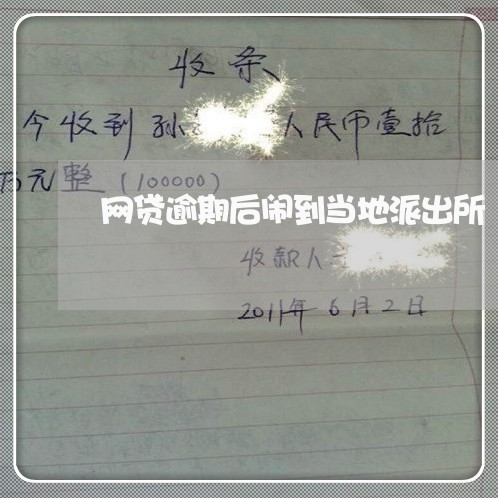 收条
今收到孙 人民币壹拾
万元整（100000）
网贷逾期后闹到当地派出所
收款人
2011年6月2日